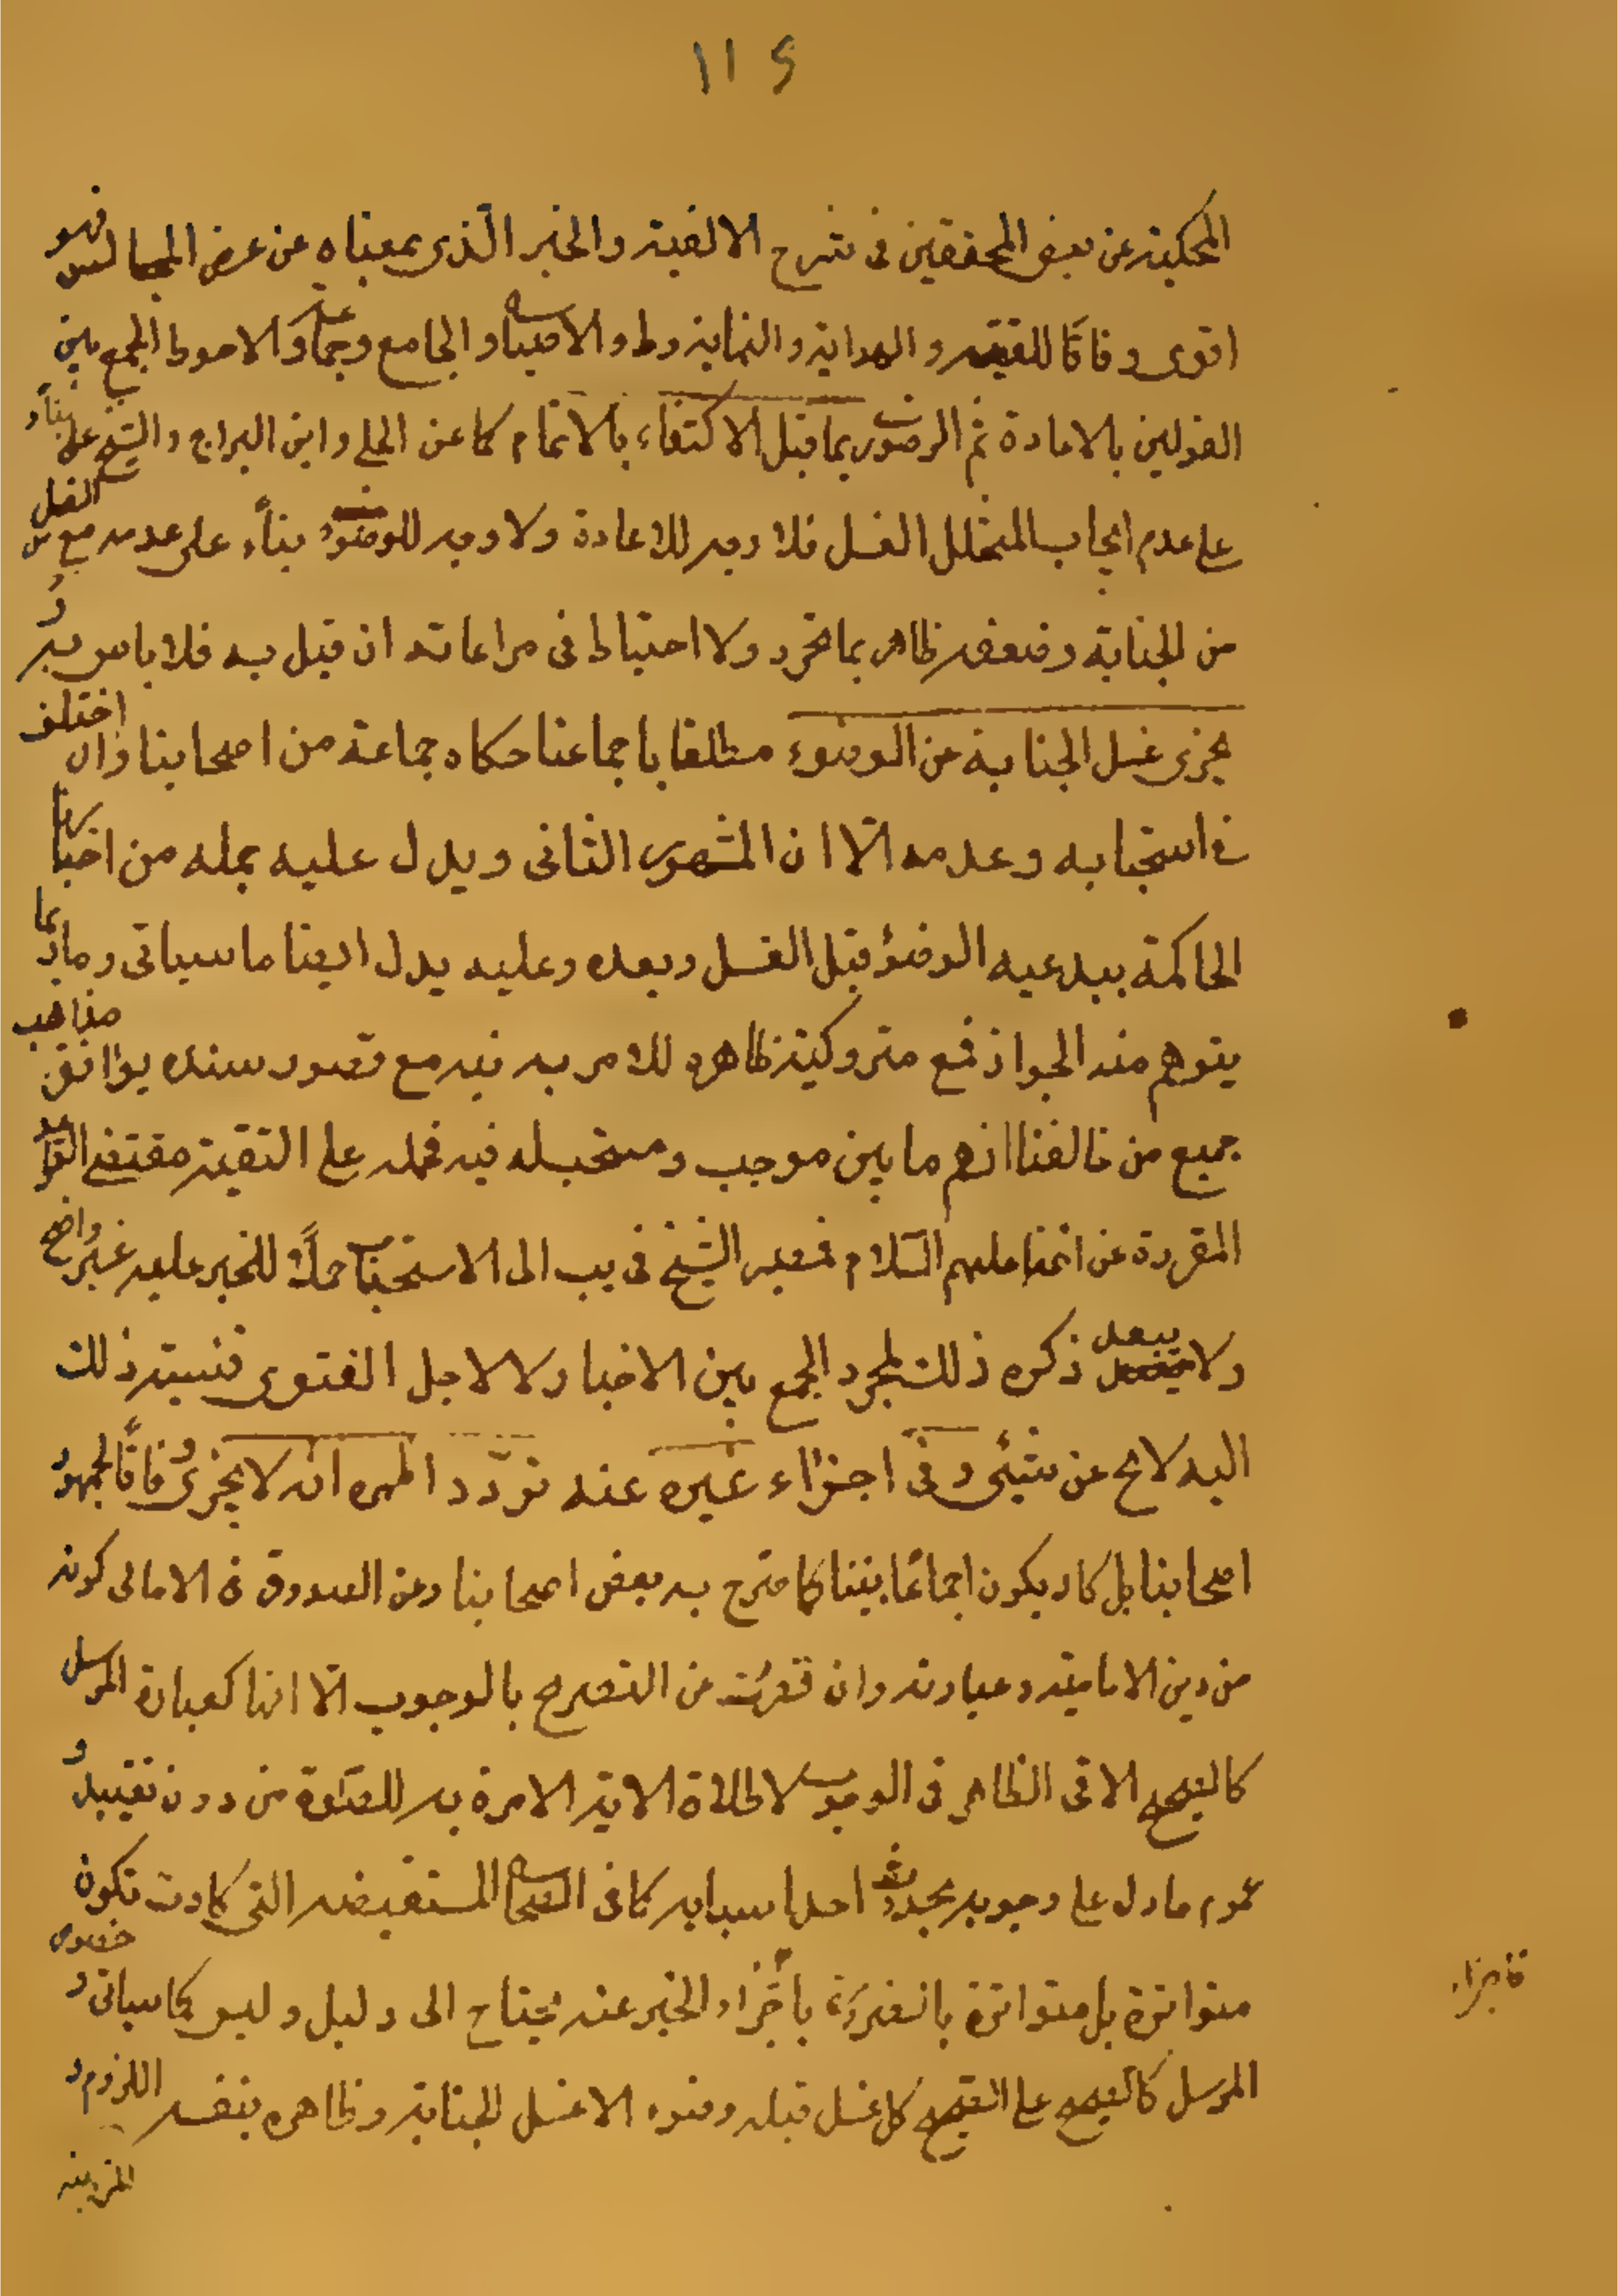 ١١٤
المحكية عن بعض المحققين فى شرح الالفية والخبر الذى بمعناه عن عرض المجالس فهو
اقوى وفاقا للفقيه والهداية والنهاية وط والاصباح والجامع وجماعة والاحوط الجمع بين
القولين بالاعادة ثم الوضوء بما قبل الاكتفاء بالاتمام كما عن الحلي وابن البراج والشيخ على بناء
على عدم ايجاب المتخلل الغسل فلا وجه للاعادة ولا وجه للوضوء بناء على عدمه مع الغسل
من الجنابة وضعفه ظاهر بما تحرر ولا احتياط فى مراعاته ان قيل به فلا باس به و
يجزى غسل الجنابة عن الوضوء مطلقا باجماعنا حكاه جماعة من اصحابنا وان اختلف
فى استحبابه وعدمه الا ان المشهور الثانى ويدل عليه جملة من اخبارنا
الحاكمة ببدعية الوضؤ قبل الغسل وبعده وعليه يدل ايضا ما سياتى وما ربما
يتوهم منه الجواز فمع متروكية ظاهره للامر به فيه مع قصور سنده يوافق مذاهب
جميع من خالفنا انهم ما بين موجب ومستحب له فيه فحمله على التقية مقتضى القواعد
المقررة عن ائمتنا عليهم السلام فمصير الشيخ فى يب الى الاستحباب حملا للخبر عليه غير واضح
ولا يبعد ذكره ذلك لمجرد الجمع بين الاخبار لا لاجل الفتوى فنسبة ذلك
اليه لا يخ عن شيئ وفى اجزاء غيره عنه تردد اظهره انه لا يجزى وفاقا لجمهور
اصحابنا بل كاد يكون اجماعا بيننا كما صرح به بعض اصحابنا وعن الصدوق فى الامالى كونه
من دين الامامية وعبارته وان قصرت عن التصريح بالوجوب الا انها كعبارة المرسل
كالصحيح الاتى الظاهر فى الوجوب لاطلاق الاية الامرة به للصلوة من دون تقييد و
عموم ما دل على وجوبه بحدوث احد اسبابه كما فى الصحاح المستفيضه التى كادت تكون
متواترة بل متواترة بالضرورة باجزاء الخبر عنه يحتاج الى دليل وليس كما سياتى و خصوص
المرسل كالصحيح على الصحيح كل غسل قبله وضوء الا غسل الجنابة وظاهره بنفسه اللزوم و
فاجزاء